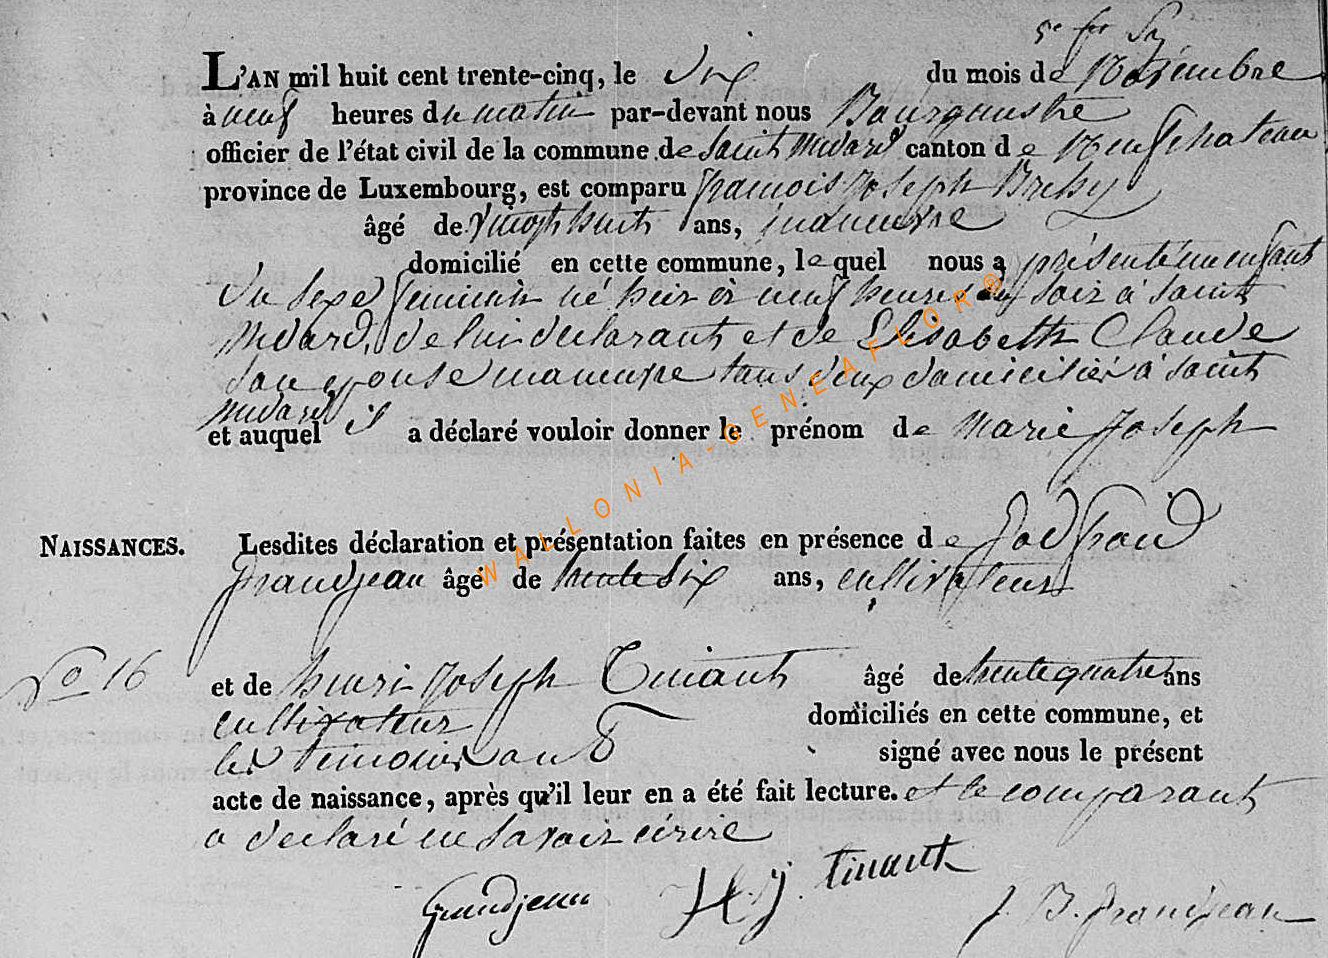 L'AN mil huit cent trente-cinq, le dix du mois de Novembre
à neuf heures du matin par-devant nous Bourgmestre
officier de l'état civil de la commune de Saint Médard canton de Neufchateau
province de Luxembourg, est comparu françois Joseph
âgé de vingt huit ans, manœuvre
domicilié en cette commune, lequel nous a présenté un enfant
du sexe feminin né hier à neuf heures du soir à Saint
Medard, de lui déclarant et de Elisabeth Claude
son epouse manœuvre tous deux domiciliés à Saint
Medard
et auquel il a déclaré vouloir donner le prénom de Marie Joseph
NAISSANCES. Lesdites déclaration et présentation faites en présence de Godfroid
Grandjean âgé de trente six ans, cultivateur
No 16
et de henri Joseph Tinant âgé de trente quatre ans
cultivateur domiciliés en cette commune, et
les temoins ont signé avec nous le présent
acte de naissance, après qu'il leur en a été fait lecture. et le comparant
a declaré ne savoir écrire
Grandjean H. J. tinant J. B. Grandjean
WALLONIA-GENEAFLOR®